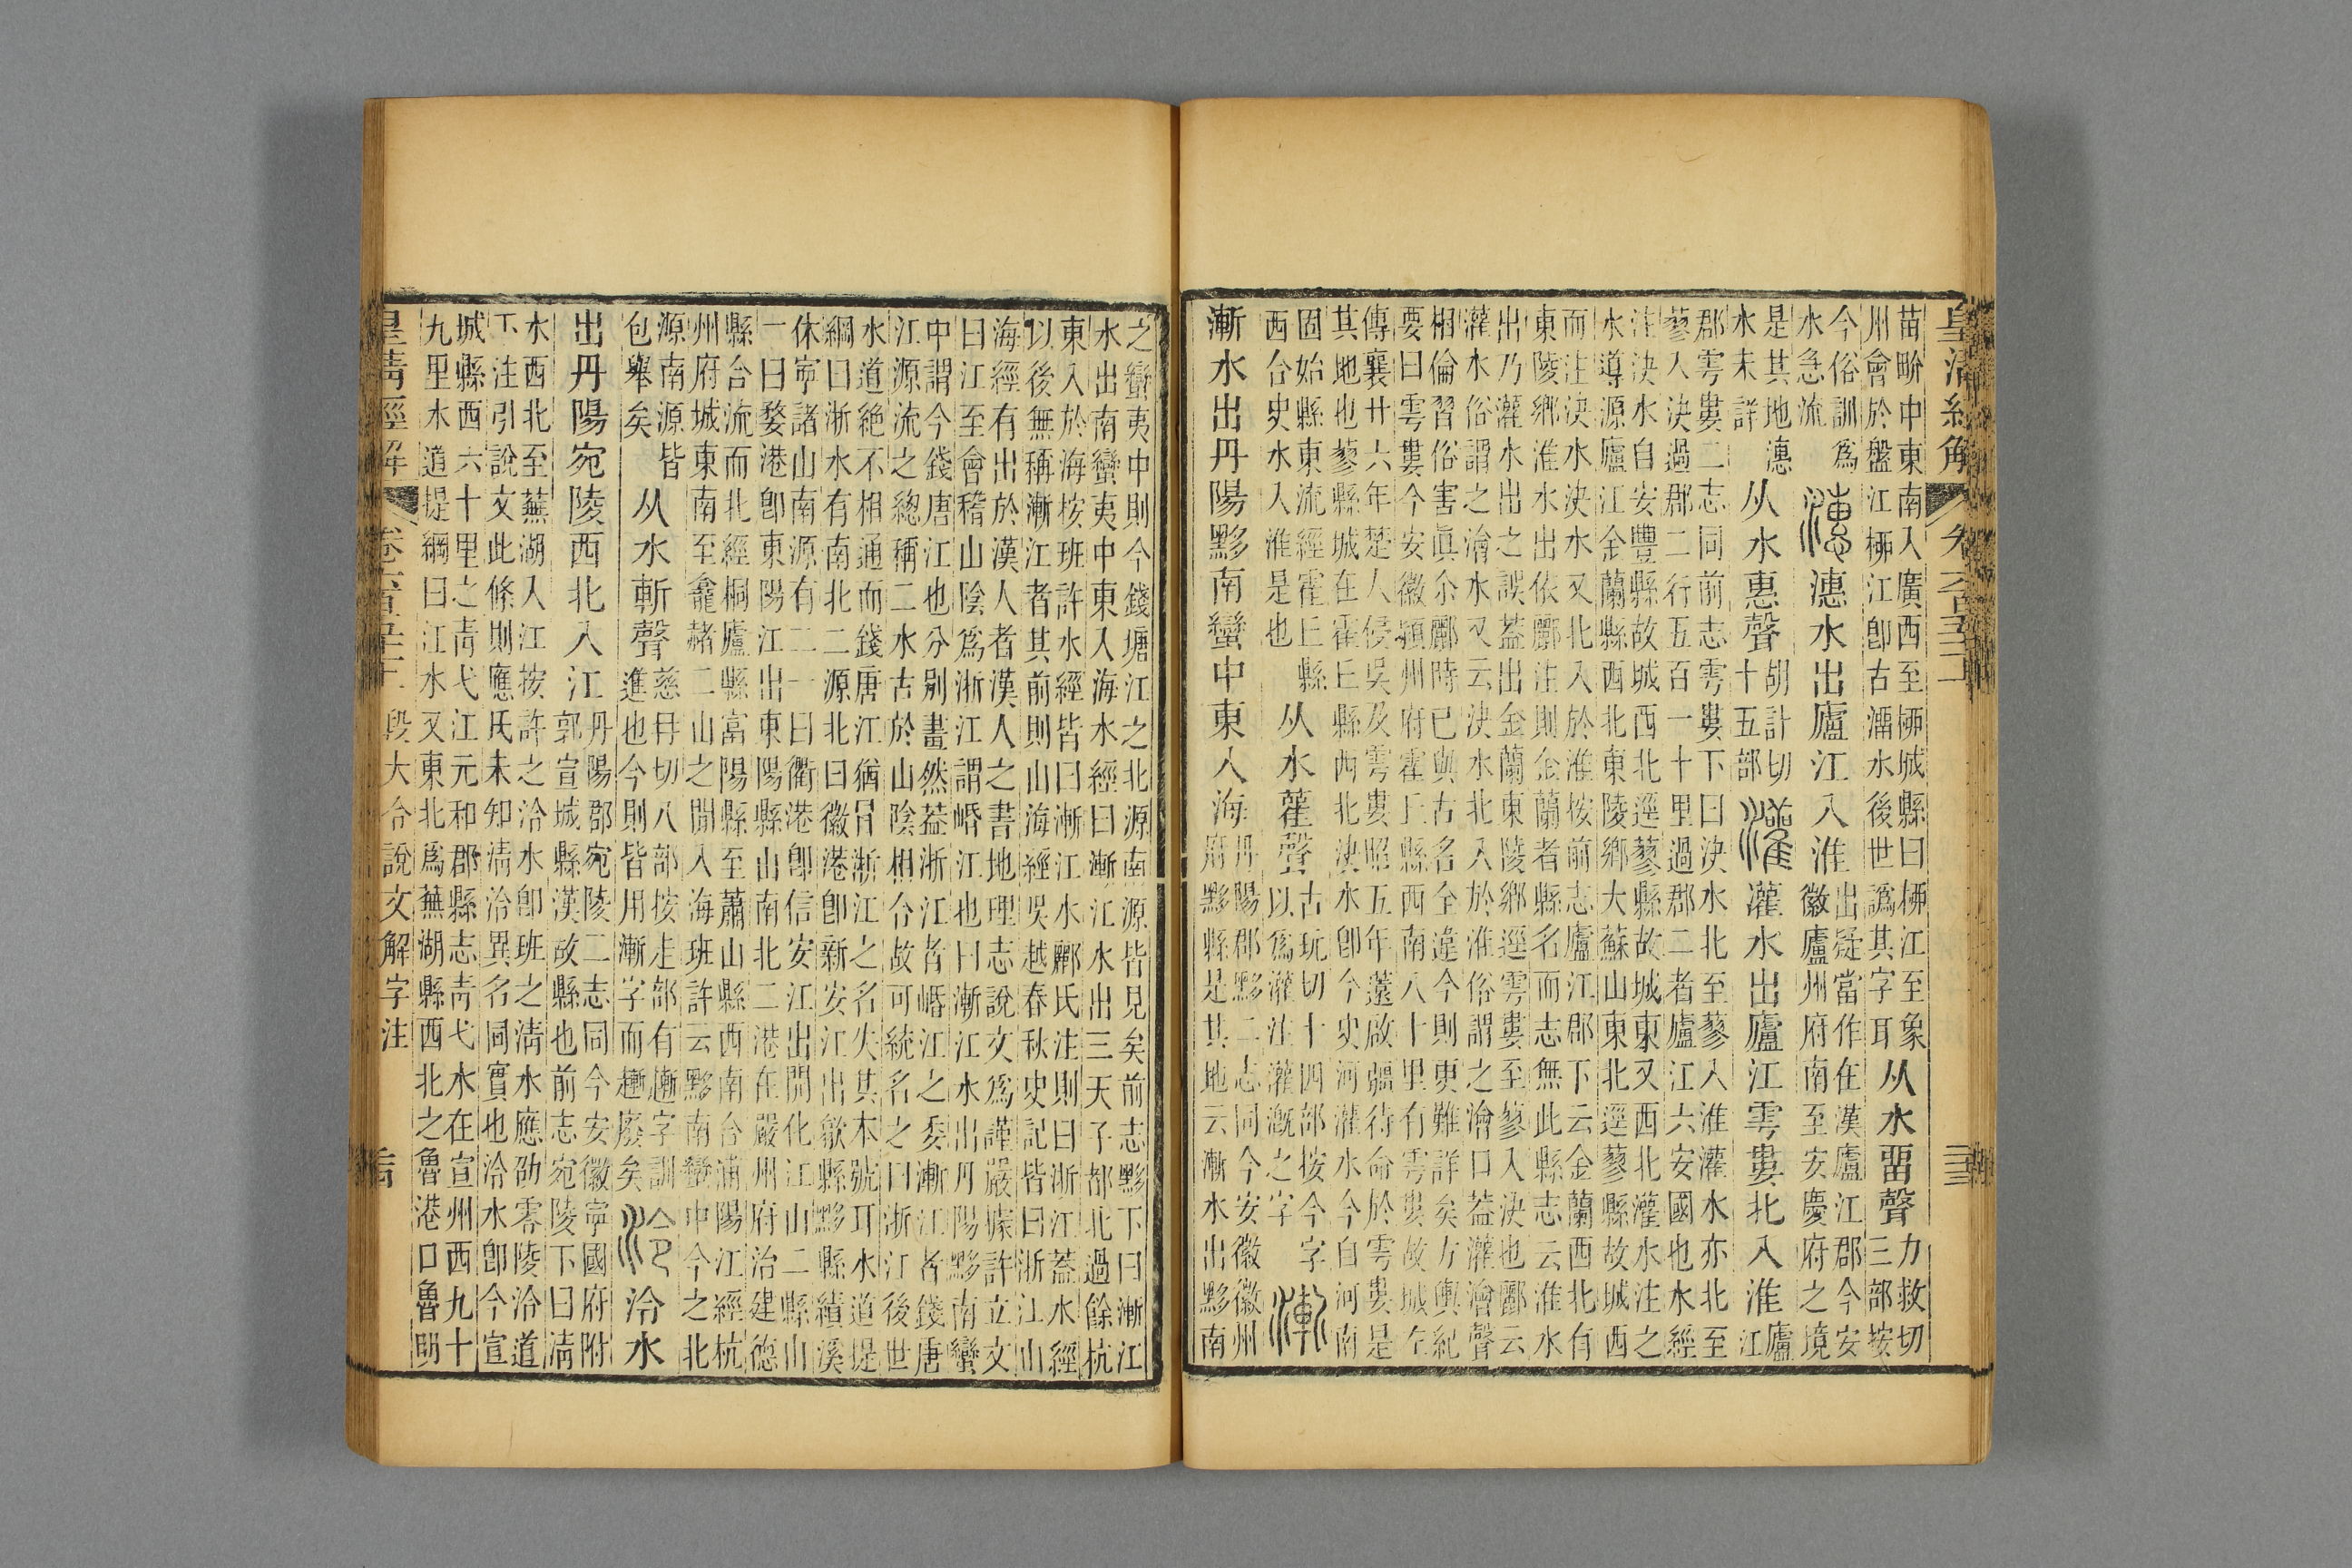 皇清經解
苗畍中東南入廣西至桺城縣曰桺江至象
州會於盤江桺江卽古澑水後世譌其字耳
从水畱聲
力救切
三部按
今俗訓爲
水急流
潓潓水出廬江入淮
出疑當作在漢廬江郡今安
徽廬州府南至安慶府之境
是其地潓
水未詳
从水惠聲
胡計切
十五部
灌灌水出廬江雩婁北入淮
廬
江
郡雩婁二志同前志雩婁下曰決水北至蓼入淮灌水亦北至
蓼入決過郡二行五百一十里過郡二者廬江六安國也水經
注決水自安豐縣故城西北逕蓼縣故城東又西北灌水注之
水導源廬江金蘭縣西北東陵鄉大蘇山東北逕蓼縣故城西
而注決水決水又北入於淮按前志廬江郡下云金蘭西北有
東陵鄉淮水出依酈注則金蘭者縣名而志無此縣志云淮水
出乃灌水出之誤葢出金蘭東陵鄉逕雩婁至蓼入決也酈云
灌水俗謂之澮水又云決水北入於淮俗謂之澮口葢灌澮聲
相倫習俗害眞尒酈時已與古名全違今則更難詳矣方輿紀
要曰雩婁今安徽潁州府霍丘縣西南八十里有雩婁故城左
傳襄廿六年楚人侵吳及雩婁昭五年薳啟疆待命於雩婁是
其地也蓼縣城在霍丘縣西北決水卽今史河灌水今白河南
固始縣東流經霍丘縣
西合史水入淮是也
从水雚聲
古玩切十四部按今字
以爲灌注灌漑之字
漸
漸水出丹陽黟南蠻中東入海
丹陽郡黟二志同今安徽徽州
府黟縣是其地云漸水出黟南
之蠻夷中則今錢塘江之北源南源皆見矣前志黟下曰漸江
水出南蠻夷中東入海水經曰漸江水出三天子都北過餘杭
東入於海按班許水經皆曰漸江水酈氏注則曰浙江葢水經
以後無稱漸江者其前則山海經吳越春秋史記皆曰浙江山
海經有出於漢人者漢人之書地理志說文爲謹嚴據許立文
曰江至會稽山陰爲浙江謂㟭江也曰漸江水出丹陽黟南蠻
中謂今錢唐江也分别畫然葢浙江者㟭江之委漸江者錢唐
江源流之總稱二水古於山陰相合故可統名之曰浙江後世
水道絶不相通而錢唐江猶冃漸江之名失其本號耳水道提
綱曰浙水有南北二源北曰徽港卽新安江出歙縣黟縣績溪
休寕諸山南源有二一曰衢港卽信安江出開化江山二縣山
一曰婺港卽東陽江出東陽縣山南北二港在嚴州府治建德
縣合流而北經桐廬縣富陽縣至蕭山縣西南合浦陽江經杭
州府城東南至龕赭二山之閒入海班許云黟南蠻中今之北
源南源皆
包舉矣
从水斬聲
慈冄切八部按走部有䟅字訓
進也今則皆用漸字而䟅廢矣
泠泠水
出丹陽宛陵西北入江
丹陽郡宛陵二志同今安徽寕國府附
郭宣城縣漢故縣也前志宛陵下曰淸
水西北至蕪湖入江按許之泠水卽班之淸水應劭零陵泠道
下注引說文此條則應氏未知淸泠異名同實也泠水卽今宣
城縣西六十里之靑弋江元和郡縣志靑弋水在宣州西九十
九里水道提綱曰江水又東北爲蕪湖縣西北之魯港口魯明
皇清經解 段大令說文解字注